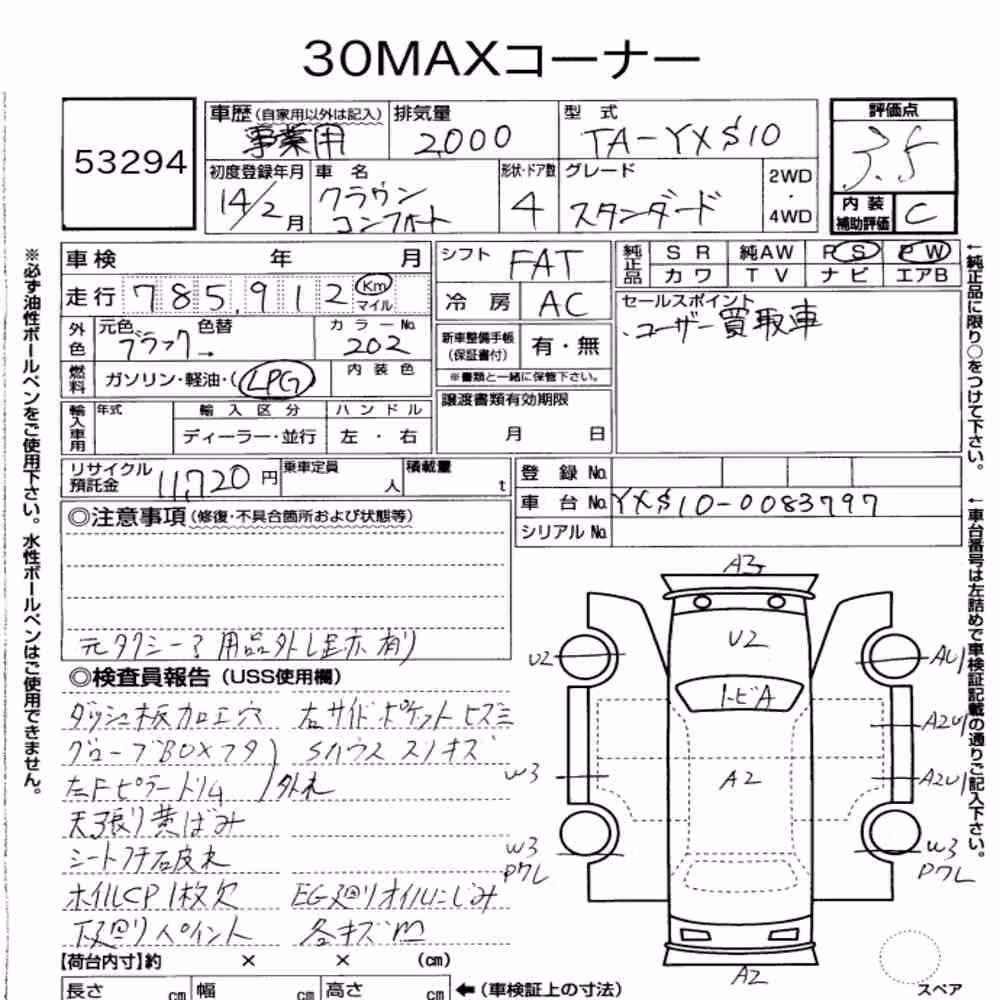 30MAXコーナー
53294
車歴(自家用以外は記入) 事業用
排気量 2,000
型式 TA-YXS10
評価点 3.5
初度登録年月 14/2月
車名 クラウン コンフォート
形状・ドア数 4
グレード スタンダード
2WD・4WD
内装補助評価 C
車検 年 月
シフト FAT
純正品 SR 純AW PS PW
カワ TV ナビ エアB
走行 785,912 Km マイル
冷房 AC
セールスポイント
・ユーザー買取車
外色 元色 ブラック→ 色替
カラーNo. 202
新車整備手帳(保証書付) 有・無
※書類と一緒に保管下さい。
燃料 ガソリン・軽油・(LPG)
内装色
譲渡書類有効期限
月 日
輸入車用 年式 輸入区分 ハンドル
ディーラー・並行 左・右
リサイクル預託金 11,720円
乗車定員 人
積載量 t
登録No.
車台No. YXS10-0083797
シリアルNo.
◎注意事項(修復・不具合箇所および状態等)
元タクシー 用品外し跡有り
◎検査員報告(USS使用欄)
ダッシュ板加工穴 右サイドポケットヒズミ
グローブBOXフタ Sハウススレキズ
左Fピラートリム 外れ
天張り黄ばみ
シートフチ石皮れ
ホイルCP1枚欠 EG廻りオイルにじみ
下廻りペイント 各キズ凹
【荷台内寸】約 × × (cm)
長さ cm 幅 cm 高さ cm ←(車検証上の寸法)
A3
U2
U2
AU1
トビA
A2U1
W3
A2
A2U1
W3
Pワレ
W3
Pワレ
A2
スペア
※必ず油性ボールペンをご使用下さい。水性ボールペンはご使用できません。
←純正品に限り○をつけて下さい。
←車台番号は左詰めで車検証記載の通りご記入下さい。